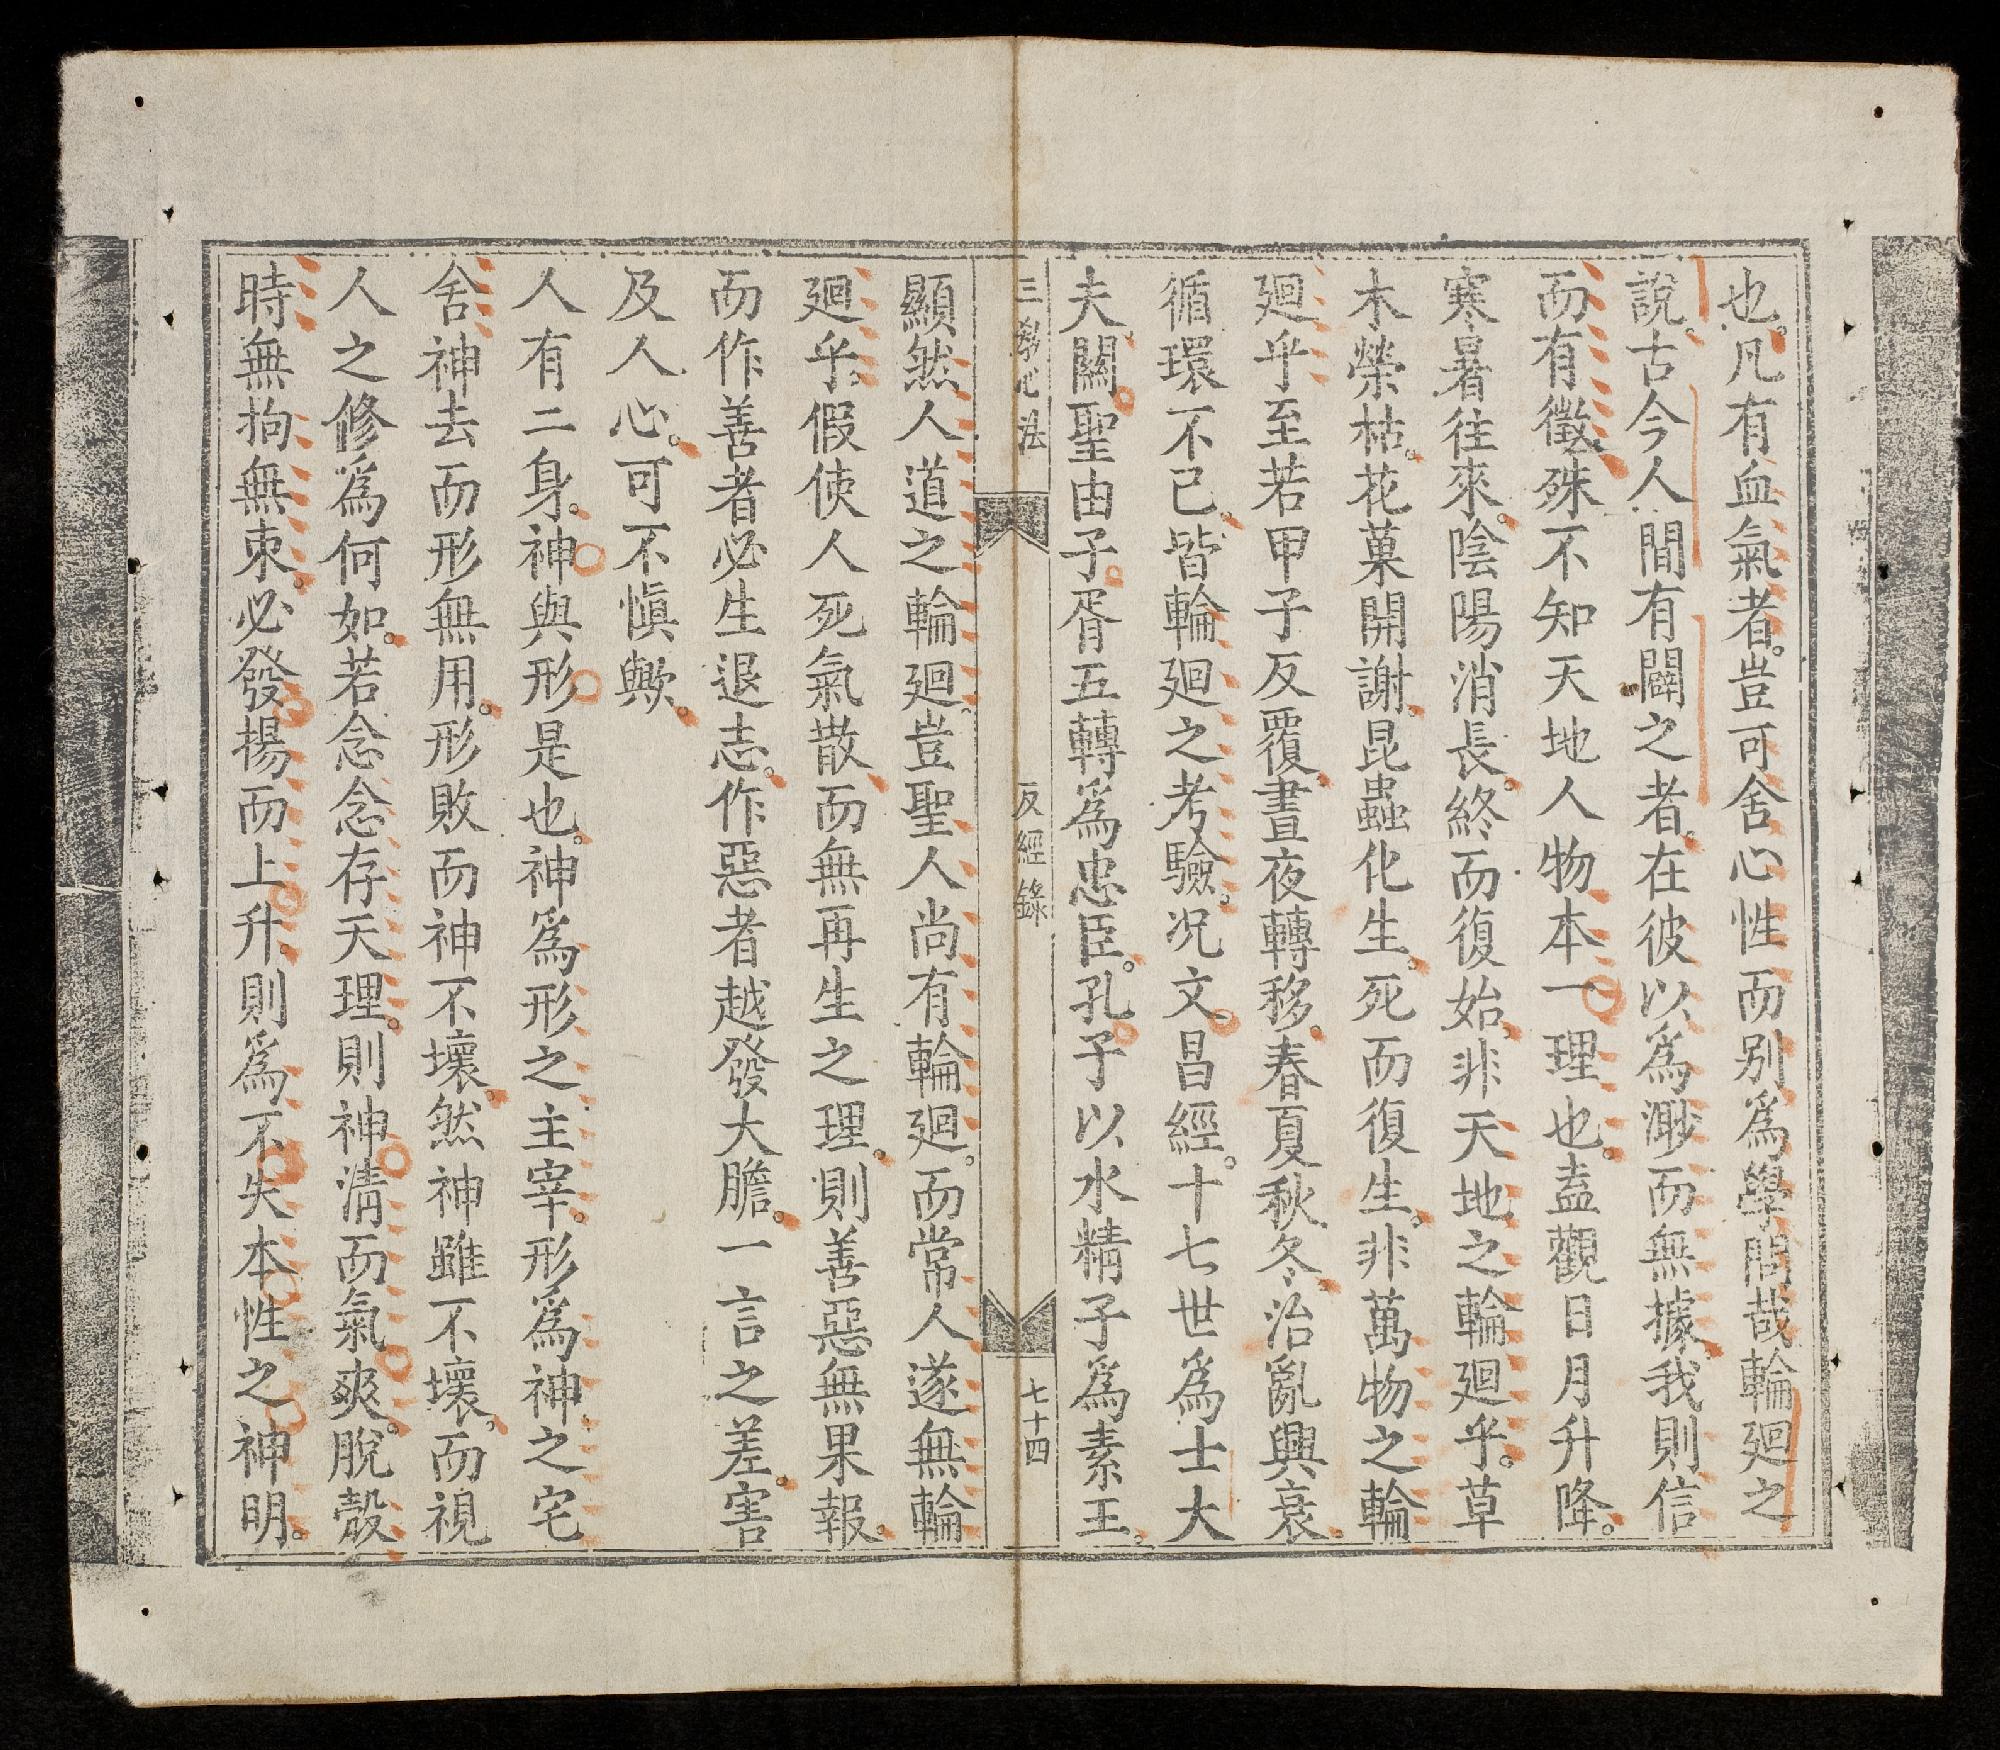 也。凡有血氣者。豈可舍心性而别爲學問哉輪廻之
說。古今人間有闢之者。在彼以爲渺而無據。我則信
而有徵。殊不知天地人物本一理也。盍觀日月升降。
寒暑往來。陰陽消長。終而復始。非天地之輪廻乎。草
木榮枯。花菓開謝。昆蟲化生。死而復生。非萬物之輪
廻乎。至若甲子反覆。晝夜轉移。春夏秋冬。治亂興衰。
循環不已。皆輪廻之考驗。况文昌經。十七世爲士大
夫。關聖由子胥五轉爲忠臣。孔子以水精子爲素王。
三教心法
反經錄
七十四
顯然人道之輪廻。豈聖人尚有輪廻。而常人遂無輪
廻乎。假使人死氣散。而無再生之理。則善惡無果報。
而作善者必生退志。作惡者越發大膽。一言之差。害
及人心。可不愼歟。
人有二身。神與形是也。神爲形之主宰。形爲神之宅
舍。神去而形無用。形敗而神不壞。然神雖不壞。而視
人之修爲何如。若念念存天理。則神清而氣爽。脫殼
時無拘無束。必發揚而上升。則爲不失本性之神明。